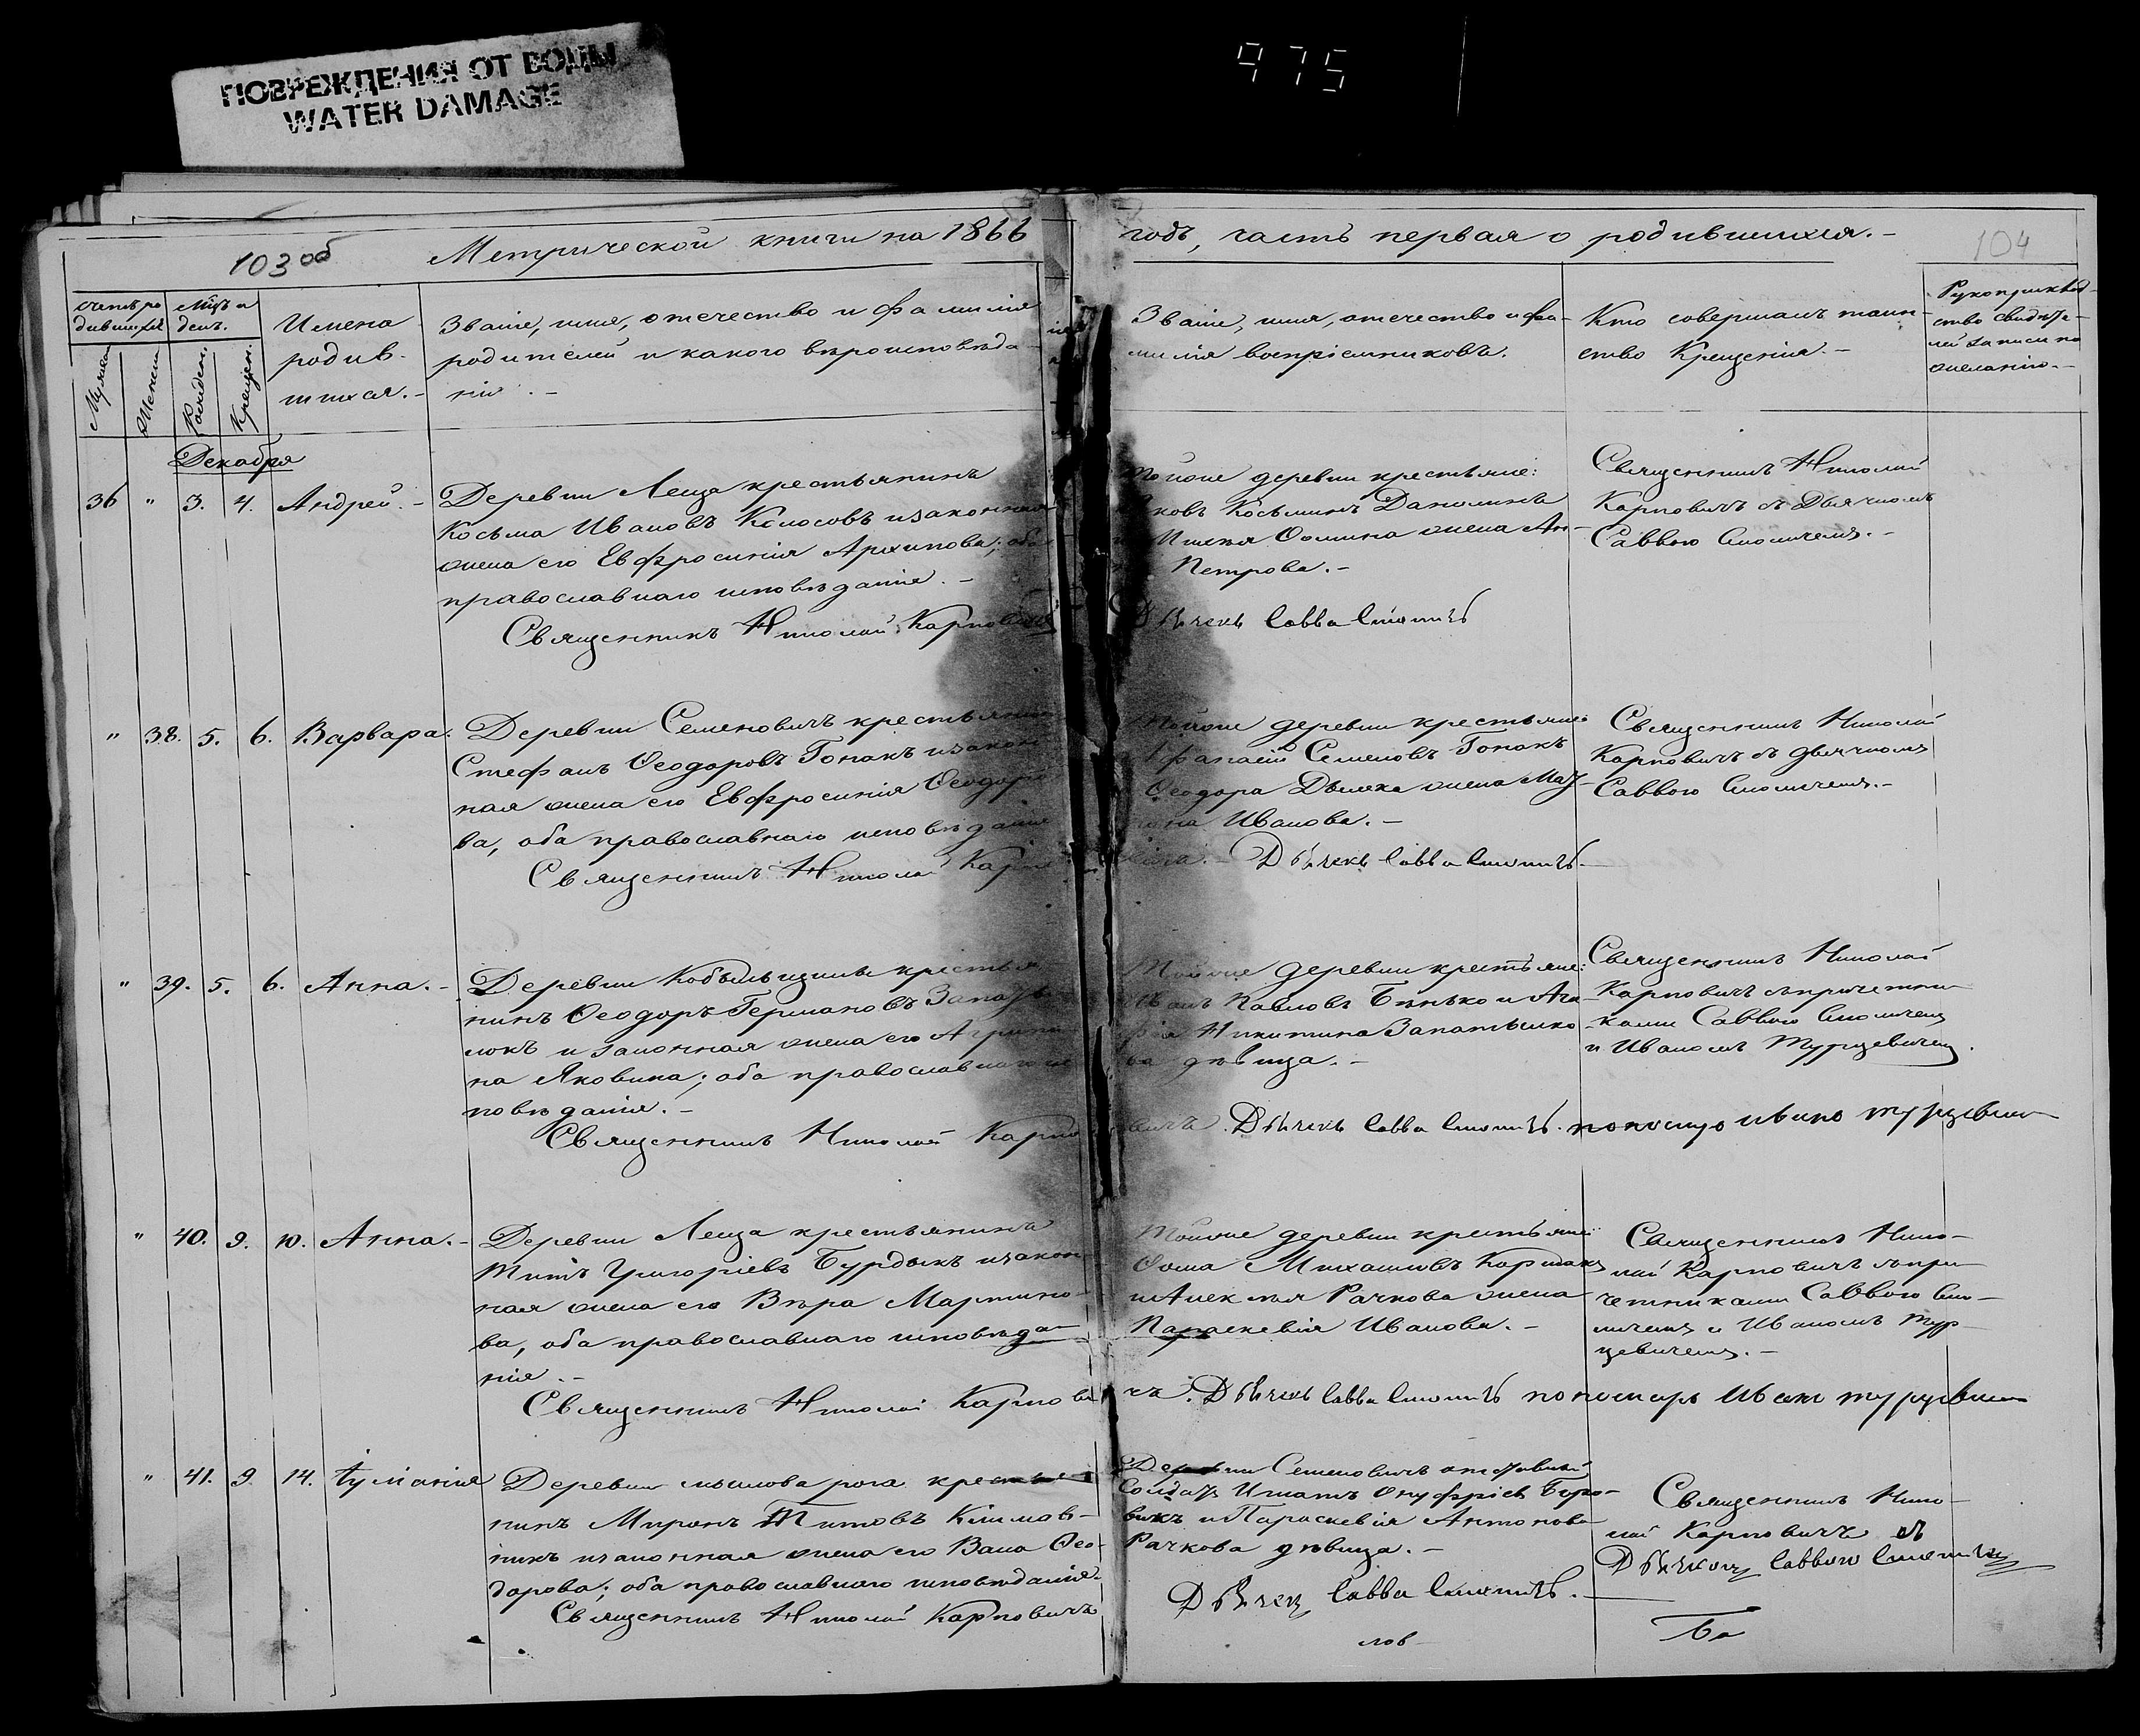 ПОВРЕЖДЕНИЯ ОТ ВОДЫ
WATER DAMAGE
975
103 об
Метрической книги на 1866
годъ, часть первая о родившихся.-
104
счетъ ро
дившихся
мѣцъ и
день.
Мужеск
Женск
Рожден.
Крещен.
Имена
родив-
шихся.-
Званіе, имя, отечество и фамилія
родителей и какого вѣроисповѣда-
нія.-
Званіе, имя, отечество и фа-
милія воспріемниковъ.
Кто совершалъ таин-
ство Крещенія.-
Рукоприклад-
ство свидѣте-
лей записи по
желанію.-
Декабря
36 " 3. 4. Андрей.-
Деревни Леща крестьянинъ
Косьма Ивановъ Колосовъ и законная
жена его Евфросинія Архипова; оба
православнаго исповѣданія.-
Священникъ Николай Карповичъ
тойже деревни крестьяне:
Яковъ Косьминъ
Фомина жена Ан-
Петрова.-
Дьячекъ Савва
Священникъ Николай
Карповичъ съ Дьячкомъ
Саввою
" 38. 5. 6. Варвара.
Деревни Семеновичъ крестьянинъ
Стефанъ Ѳеодоровъ Гопакъ и закон
ная жена его Евфросинія Ѳеодоро
ва, оба православнаго исповѣданія
Священникъ Николай Карпо
тойже деревни крестьяне
Семеновъ Гопакъ
Ѳеодора жена
Иванова.-
Дьячекъ Савва
Священникъ Николай
Карповичъ съ дьячкомъ
Саввою
" 39. 5. 6. Анна.-
Деревни Кобыльщины крестья
нинъ Ѳеодоръ Германовъ
и законная жена его Агрипи
на Яковина; оба православнаго ис
повѣданія.-
Священникъ Николай Карпо
тойже деревни крестьяне:
Иванъ Павловъ Бенько и Ага-
фія Никитина
ва дѣвица.-
вичъ. Дьячекъ Савва
Священникъ Николай
Карповичъ съ причетни
ками Саввою
и Иваномъ Турцевичемъ.
" 40. 9. 10. Анна.-
Деревни Леща крестьянинъ
Титъ Григоріевъ Бурдыкъ и закон
ная жена его Вѣра Мартино-
ва, оба православнаго исповѣда-
нія.-
Священникъ Николай Карпови
тойже деревни крестьяне:
Ѳома Михаиловъ
и Алексѣя Рачкова жена
Параскевія Иванова.-
чъ. Дьячекъ Савва
Священникъ Нико-
лай Карповичъ съ при
четниками Саввою
и Иваномъ Тур-
цевичемъ.-
" 41. 9. 14. Іуліанія
Деревни рога крестья
нинъ Миронъ Титовъ Климов-
и законная жена его Ѳео-
дорова; оба православнаго исповѣданія.
Священникъ Николай Карповичъ
Деревни Семеновичъ отставный
Солдатъ Игнатъ Онуфріевъ Боро-
викъ и Параскевія Антонова
Рачкова дѣвица.-
Дьячекъ Савва
Священникъ Нико-
лай Карповичъ съ
Дьячкомъ Саввою